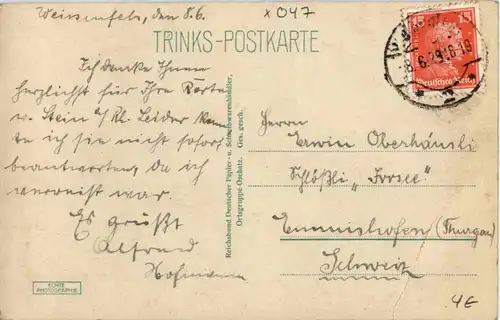 Weissenfels, den 8.6.
x 047
TRINKS-POSTKARTE
15 15
Deutsches Reich
8.6.29.18-19
Ich danke Ihnen
herzlichst für Ihre Karte
v. Stein a/Rh. Leider konn
te ich sie nicht sofort
beantworten, da ich
verreist war.
Es grüßt
Alfred
Hofmann
Reichsbund Deutscher Papier- u. Schreibwarenhändler,
Ortsgruppe Oschatz. Ges. gesch.
Herrn
Erwin Oberhänsli
Schlößli „Forsee"
Emmishofen (Thurgau)
Schweiz
ECHTE
PHOTOGRAPHIE
4E